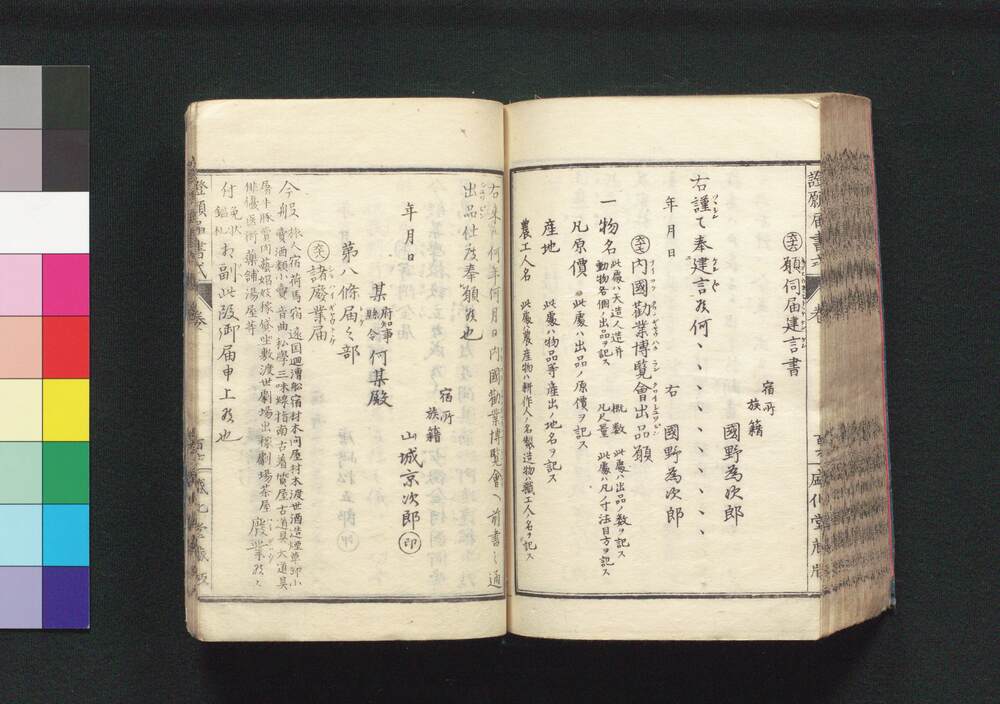 願伺届建言書
宿所
族籍
國野為次郎
右謹て奉建言候何、、、、、、、、、
年月日
右
國野為次郎
内國勧業博覧會出品願
一物名 此處ハ天造人造并動物各個ノ出品ヲ記ス
概数 此處ハ出品ノ数ヲ記ス
凡尺量 此處ハ凡ノ寸法目方ヲ記ス
凡原價 此處ハ出品ノ原價ヲ記ス
産地 此處ハ物品等産出ノ地名ヲ記ス
農工人名 此處ハ農産物ハ耕作人ノ名製造物ハ職工人ノ名ヲ記ス
右来何年何月日内國勧業博覧會へ前書之通
出品仕度奉願候也
宿所
族籍
年月日
山城京次郎 印
某府知事縣令何某殿
第八條届之部
諸廢業届
今般
旅人宿荷馬宿遠国廻漕船宿材木問屋材木渡世酒造煙草卸小
賣酒類小賣音曲私學三味線指南古着質屋古道具大道具
屠牛豚賣肉藝娼妓稼貸坐敷渡世劇場出稼劇場茶屋
俳優医術藥舗湯屋等
廢業候ニ
付免状鑑札相副此段御届申上候也
證願届書式
卷
盛化堂蔵版